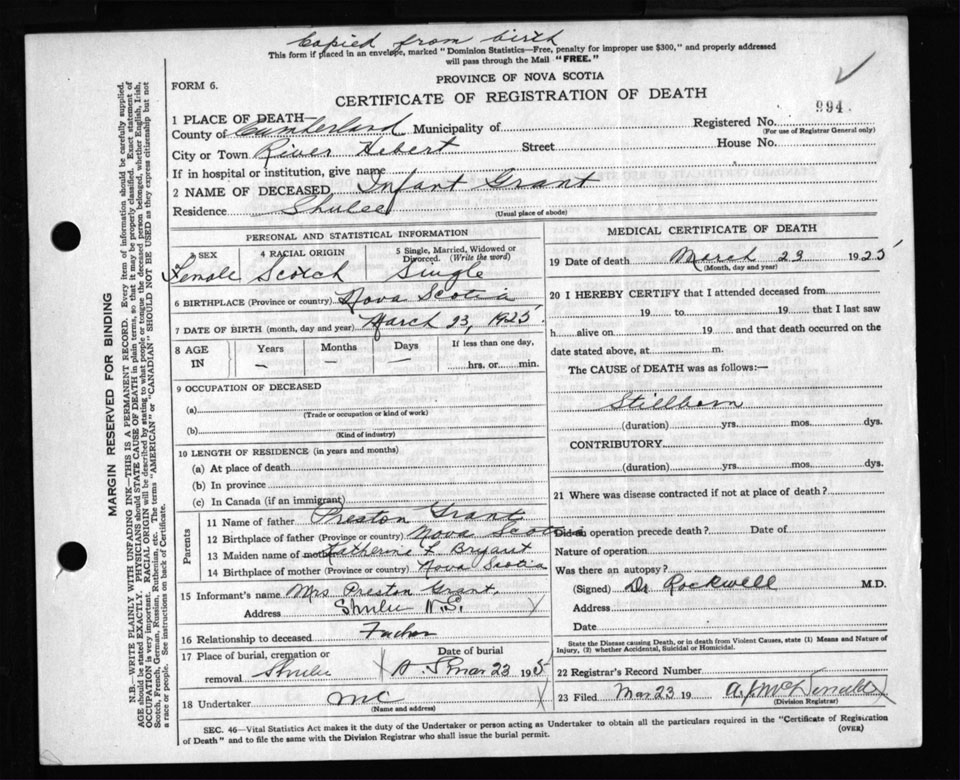 Copied from birth
This form if placed in an envelope, marked "Dominion Statistics—Free, penalty for improper use $300," and properly addressed
will pass through the Mail "FREE."
FORM 6.
PROVINCE OF NOVA SCOTIA
CERTIFICATE OF REGISTRATION OF DEATH
994
1 PLACE OF DEATH—
County of Cumberland Municipality of
Registered No.
(For use of Registrar General only)
City or Town River Hebert Street House No.
If in hospital or institution, give name
2 NAME OF DECEASED, Infant Grant
Residence Shulee
(Usual place of abode)
PERSONAL AND STATISTICAL INFORMATION
3 SEX 4 RACIAL ORIGIN 5 Single, Married, Widowed or Divorced. (Write the word)
Female Scotch Single
6 BIRTHPLACE (Province or country) Nova Scotia
7 DATE OF BIRTH (month, day and year) March 23, 1925
8 AGE IN Years Months Days If less than one day,
— — — hrs. or min.
9 OCCUPATION OF DECEASED
(a)
(Trade or occupation or kind of work)
(b)
(Kind of industry)
10 LENGTH OF RESIDENCE (in years and months)
(a) At place of death
(b) In province
(c) In Canada (if an immigrant)
Parents
11 Name of father Preston Grant
12 Birthplace of father (Province or country) Nova Scotia
13 Maiden name of mother Katherine L Bryant
14 Birthplace of mother (Province or country) Nova Scotia
15 Informant's name Mrs Preston Grant
Address Shulee N.S.
16 Relationship to deceased
17 Place of burial, cremation or removal Shulee
Date of burial
Mar 23 195
18 Undertaker
(Name and address)
MEDICAL CERTIFICATE OF DEATH
19 Date of death March 23 1925
(Month, day and year)
20 I HEREBY CERTIFY that I attended deceased from
19 to 19 that I last saw
h alive on 19 and that death occurred on the
date stated above, at m.
The CAUSE of DEATH was as follows:—
Stillborn
(duration) yrs. mos. dys.
CONTRIBUTORY
(duration) yrs. mos. dys.
21 Where was disease contracted if not at place of death?
Did an operation precede death? Date of
Nature of operation
Was there an autopsy?
(Signed) Dr Rockwell M.D.
Address
Date
State the Disease causing Death, or in death from Violent Causes, state (1) Means and Nature of
Injury, (2) whether Accidental, Suicidal or Homicidal.
22 Registrar's Record Number
23 Filed Mar 23 19
(Division Registrar)
SEC. 46—Vital Statistics Act makes it the duty of the Undertaker or person acting as Undertaker to obtain all the particulars required in the "Certificate of Registration
of Death" and to file the same with the Division Registrar who shall issue the burial permit.
(OVER)
MARGIN RESERVED FOR BINDING
N.B.—WRITE PLAINLY WITH UNFADING INK—THIS IS A PERMANENT RECORD. Every item of information should be carefully supplied.
AGE should be stated EXACTLY. PHYSICIANS should STATE CAUSE OF DEATH in plain terms, so that it may be properly classified. Exact statement of
OCCUPATION is very important. RACIAL ORIGIN will be described by stating to what people or tongue the deceased person belonged, whether English, Irish,
Scotch, French, German, Russian, Ruthenian, etc. The terms "AMERICAN" or "CANADIAN" SHOULD NOT BE USED as they express citizenship but not
a race or people. See instructions on back of Certificate.